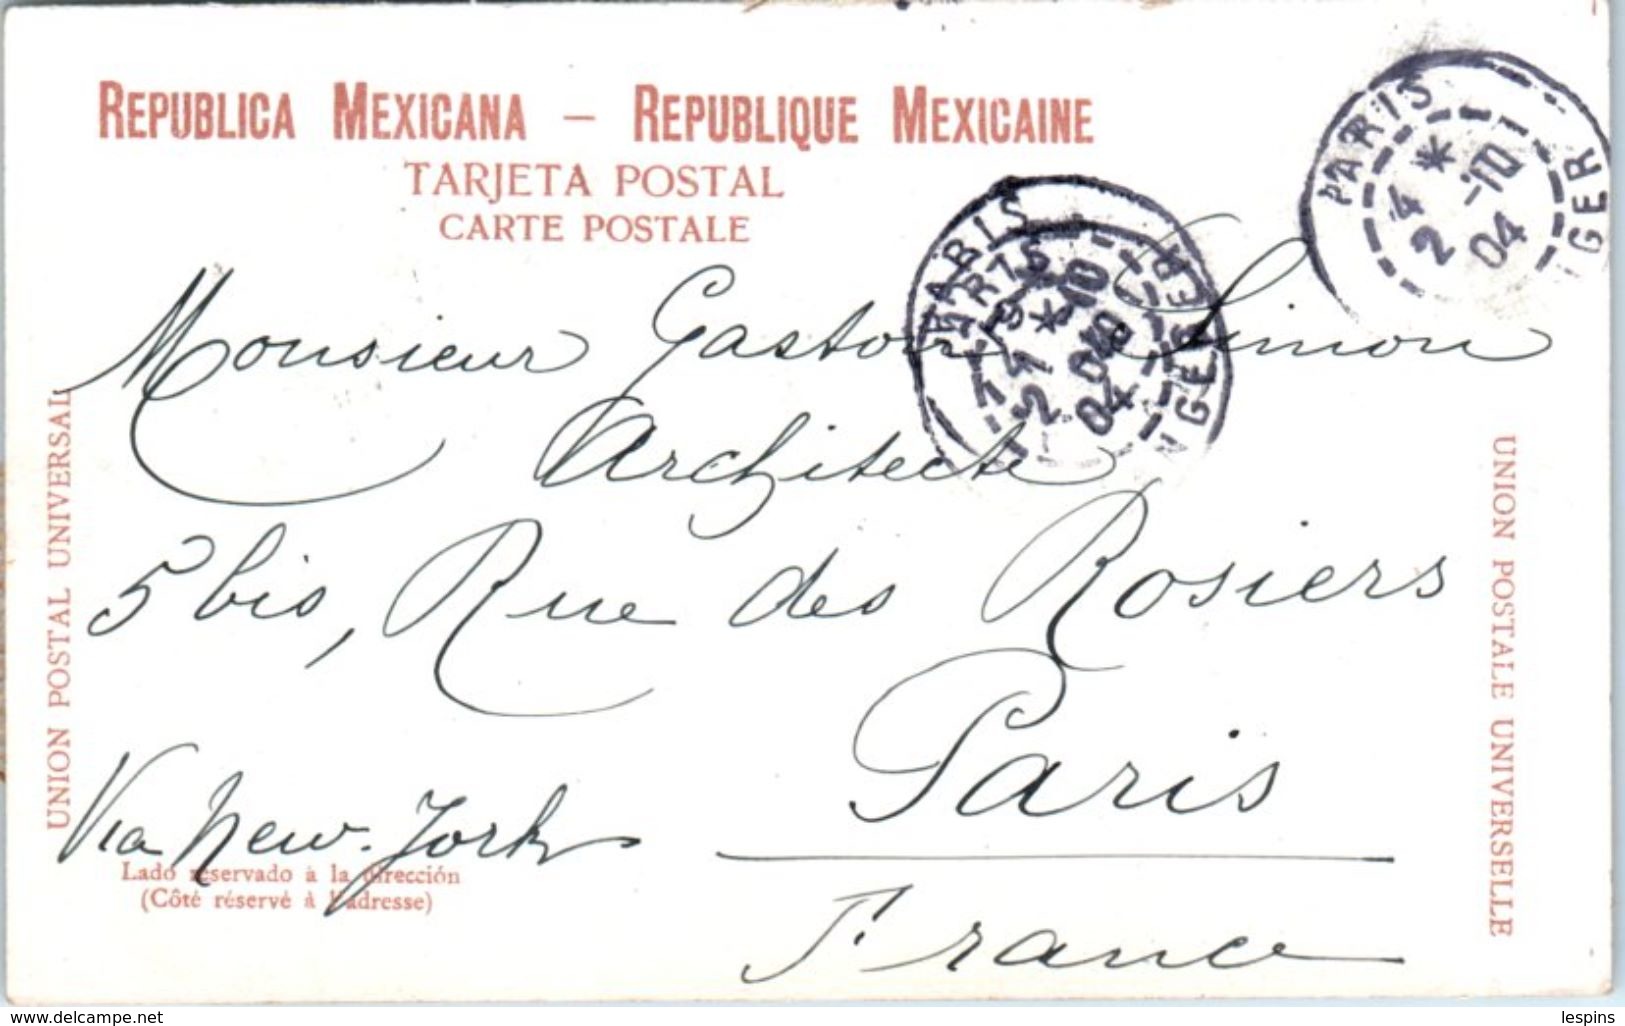 REPUBLICA MEXICANA – REPUBLIQUE MEXICAINE
TARJETA POSTAL
CARTE POSTALE
PARIS
4 *
2 -10
04
GER
PARIS
Monsieur Gaston Simon
Architecte
5 bis, Rue des Rosiers
Paris
France
Via New-York
UNION POSTAL UNIVERSAL
UNION POSTALE UNIVERSELLE
Lado reservado à la dirección
(Côté réservé à l'adresse)
www.delcampe.net
lespins